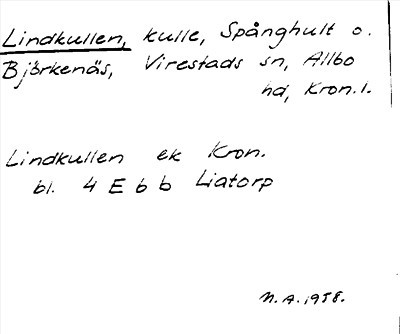 Lindkullen, kulle, Spånghult o.
Björkenäs, Virestads sn, Allbo
hd, Kron.l.
Lindkullen ek Kron.
bl. 4 E b b Liatorp
N.A. 1958.